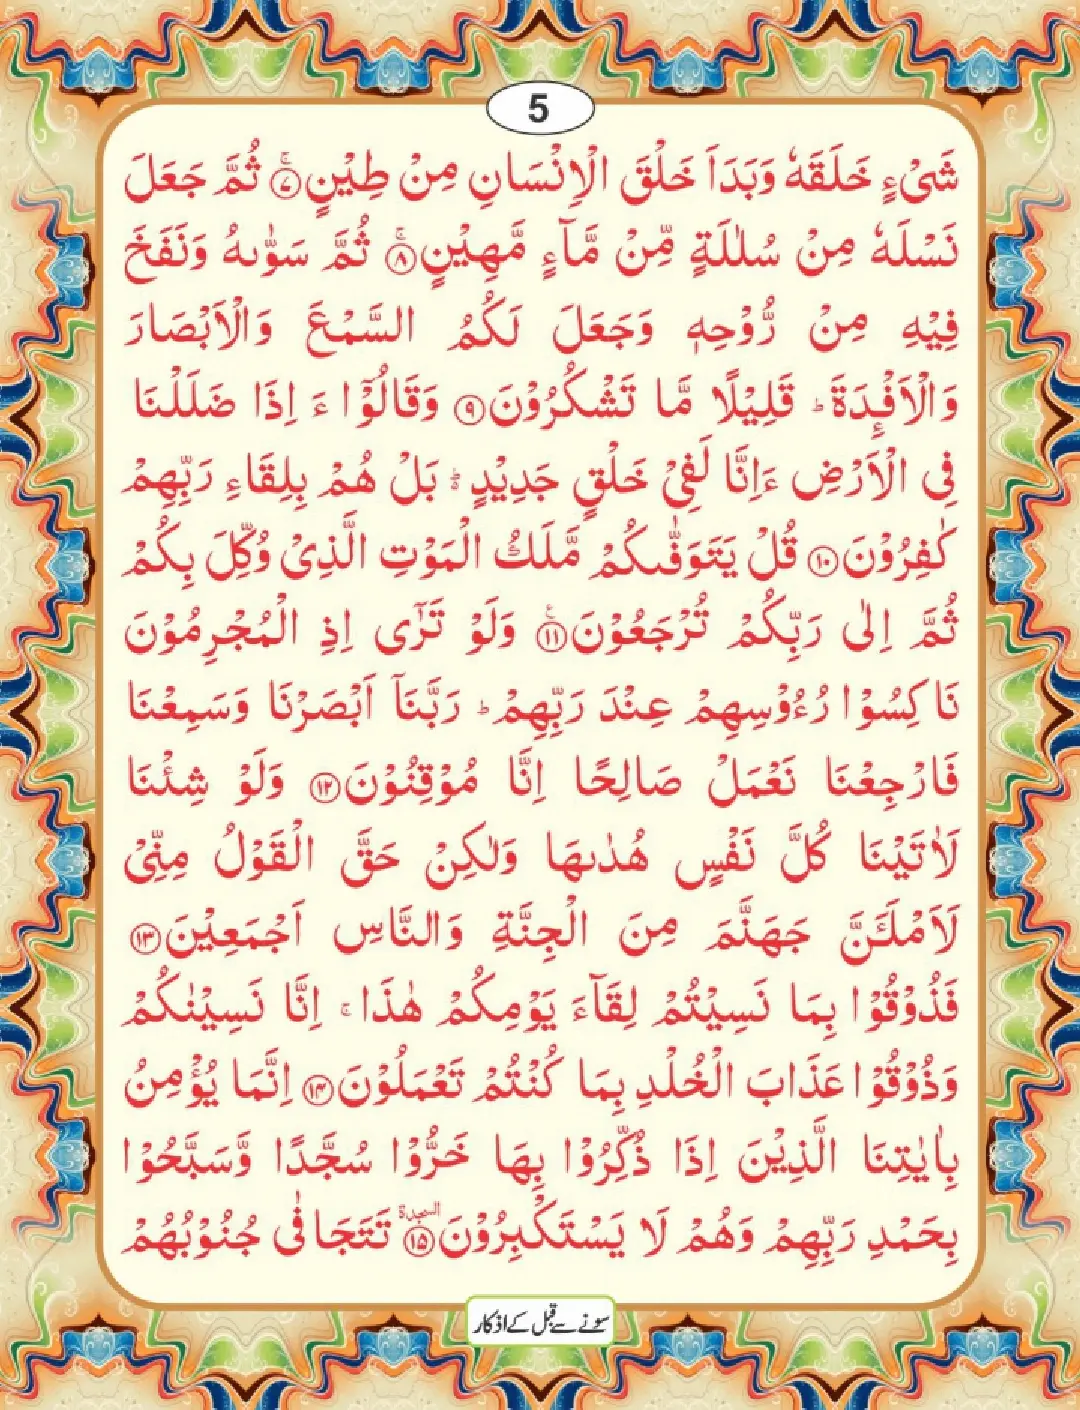 5
شَیْءٍ خَلَقَهٗ وَبَدَاَ خَلْقَ الْاِنْسَانِ مِنْ طِیْنٍ ۚ‏﴿۷﴾ ثُمَّ جَعَلَ
نَسْلَهٗ مِنْ سُلٰلَةٍ مِّنْ مَّآءٍ مَّهِیْنٍ ۚ‏﴿۸﴾ ثُمَّ سَوّٰىهُ وَنَفَخَ
فِیْهِ مِنْ رُّوْحِهٖ وَجَعَلَ لَكُمُ السَّمْعَ وَالْاَبْصَارَ
وَالْاَفْـِٕدَةَ ؕ قَلِیْلًا مَّا تَشْكُرُوْنَ ﴿۹﴾ وَقَالُوْۤا ءَ اِذَا ضَلَلْنَا
فِی الْاَرْضِ ءَاِنَّا لَفِیْ خَلْقٍ جَدِیْدٍ ؕ۬ بَلْ هُمْ بِلِقَآءِ رَبِّهِمْ
كٰفِرُوْنَ ﴿۱۰﴾ قُلْ یَتَوَفّٰىكُمْ مَّلَكُ الْمَوْتِ الَّذِیْ وُكِّلَ بِكُمْ
ثُمَّ اِلٰی رَبِّكُمْ تُرْجَعُوْنَ ﴿۱۱﴾ ع وَلَوْ تَرٰۤی اِذِ الْمُجْرِمُوْنَ
نَاكِسُوْا رُءُوْسِهِمْ عِنْدَ رَبِّهِمْ ؕ رَبَّنَاۤ اَبْصَرْنَا وَسَمِعْنَا
فَارْجِعْنَا نَعْمَلْ صَالِحًا اِنَّا مُوْقِنُوْنَ ﴿۱۲﴾ وَلَوْ شِئْنَا
لَاٰتَیْنَا كُلَّ نَفْسٍ هُدٰىهَا وَلٰكِنْ حَقَّ الْقَوْلُ مِنِّیْ
لَاَمْلَـَٔنَّ جَهَنَّمَ مِنَ الْجِنَّةِ وَالنَّاسِ اَجْمَعِیْنَ ﴿۱۳﴾
فَذُوْقُوْا بِمَا نَسِیْتُمْ لِقَآءَ یَوْمِكُمْ هٰذَا ۚ اِنَّا نَسِیْنٰكُمْ
وَذُوْقُوْا عَذَابَ الْخُلْدِ بِمَا كُنْتُمْ تَعْمَلُوْنَ ﴿۱۴﴾ اِنَّمَا یُؤْمِنُ
بِاٰیٰتِنَا الَّذِیْنَ اِذَا ذُكِّرُوْا بِهَا خَرُّوْا سُجَّدًا وَّسَبَّحُوْا
بِحَمْدِ رَبِّهِمْ وَهُمْ لَا یَسْتَكْبِرُوْنَ ﴿۱۵﴾ السجدة تَتَجَافٰی جُنُوْبُهُمْ
سونے سے قبل کے اذکار